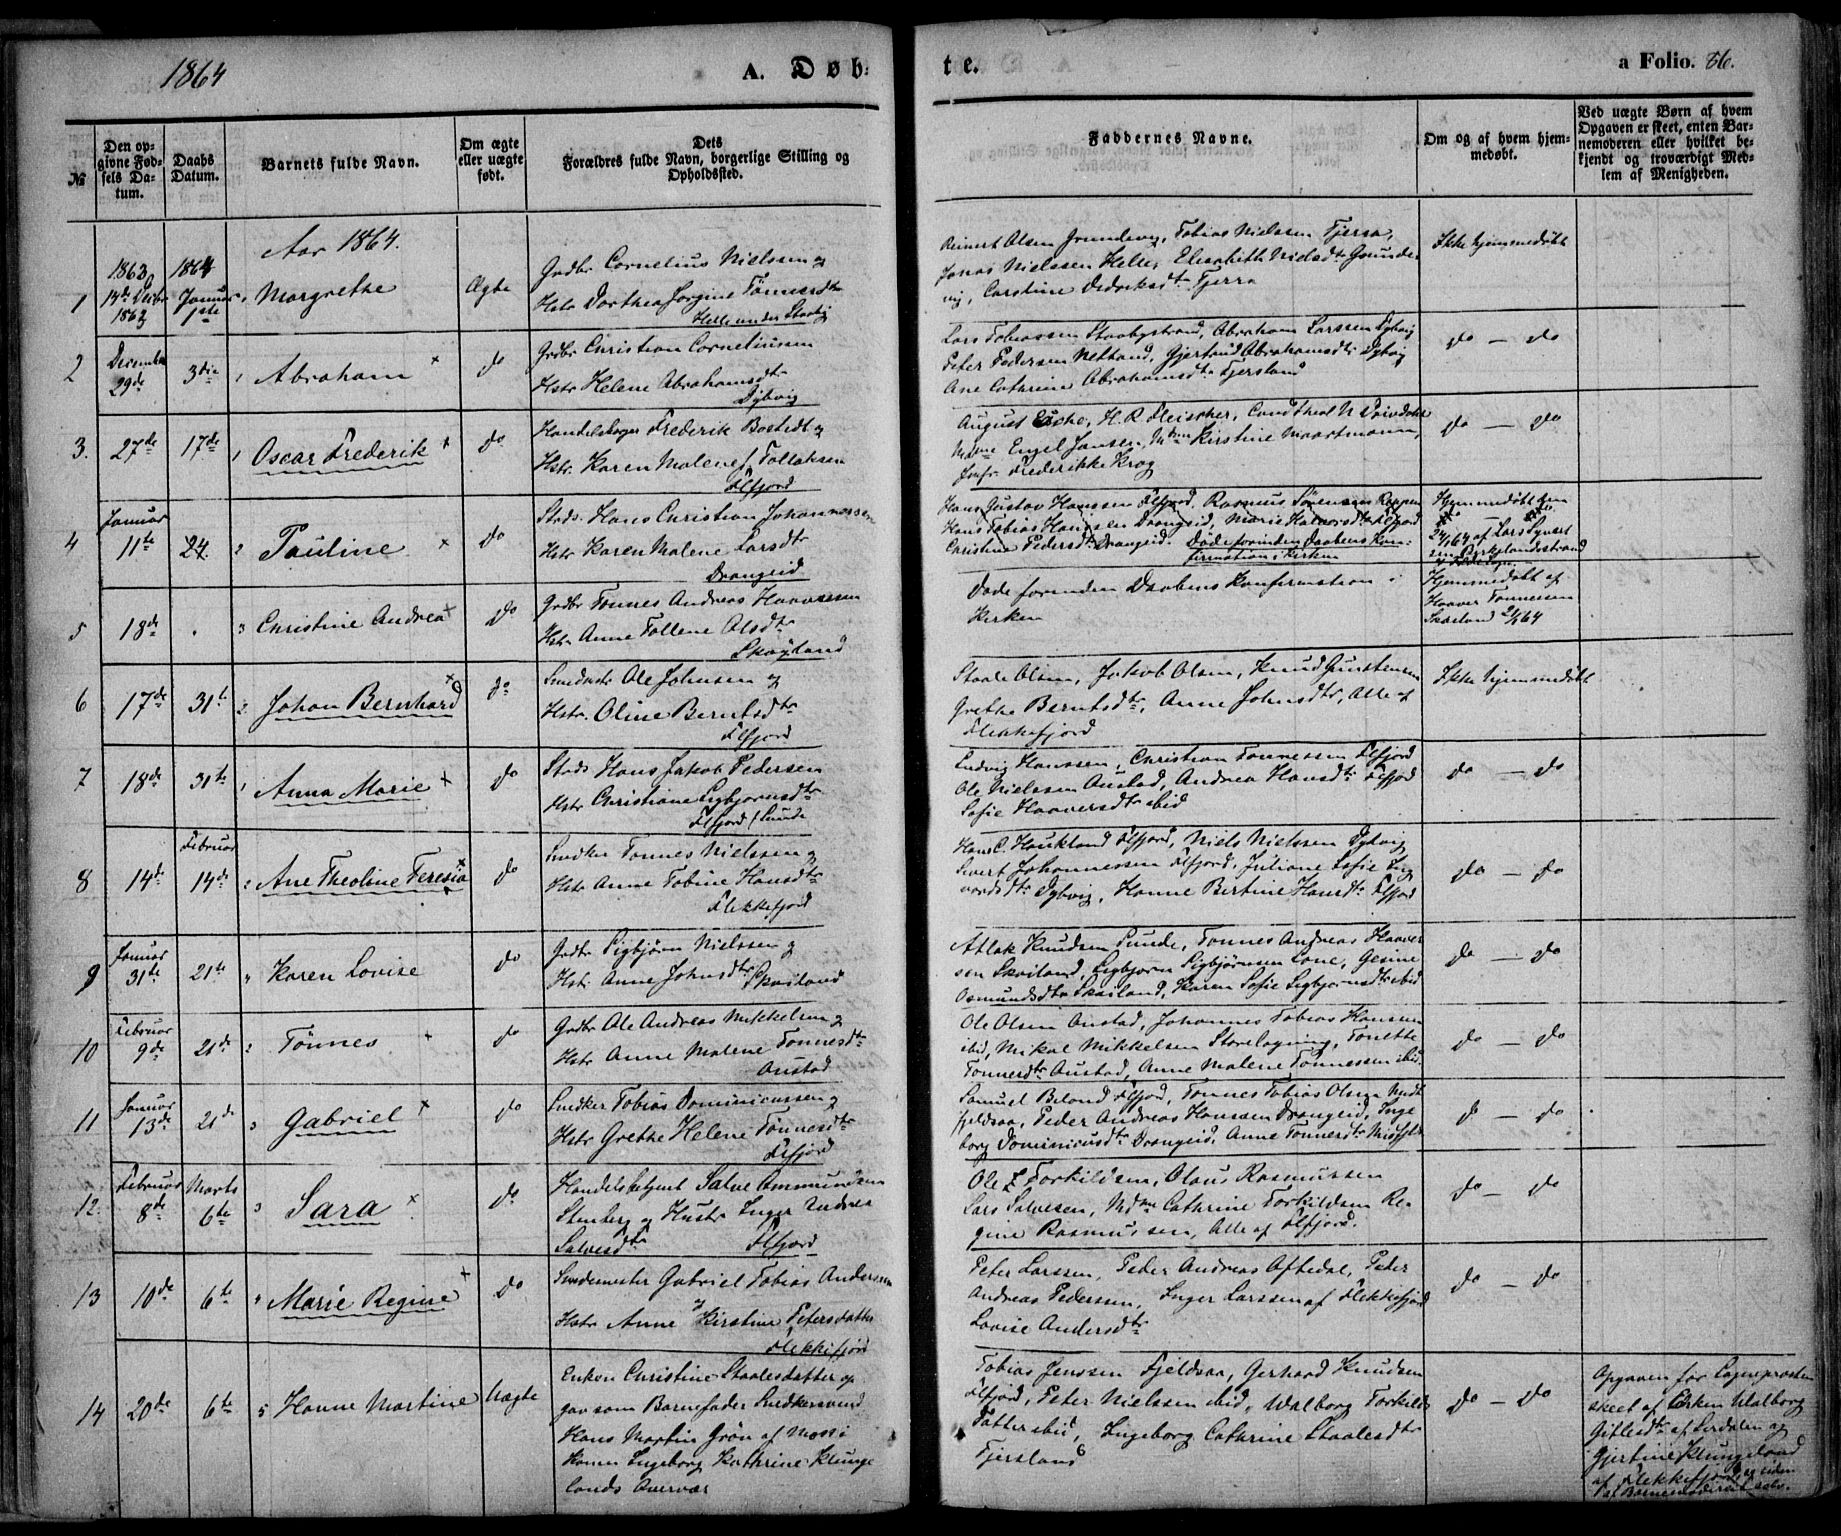 1864
A. Døb-
te.
a Folio. 86.
№
Den op-
givne Fød-
sels Da-
tum.
Daabs
Datum.
Barnets fulde Navn.
Om ægte
eller uægte
født.
Dets
Forældres fulde Navn, borgerlige Stilling og
Opholdssted.
Faddernes Navne.
Om og af hvem hjem-
medøbt.
Ved uægte Børn af hvem
Opgaven er skeet, enten Bar-
nemoderen eller hvilket be-
kjendt og troværdigt Med-
lem af Menigheden.
Aar 1864.
1
1863
14de Decbr
1863
1864
Januar
1ste
Margrethe
Ægte
Grdbr Cornelius Nielssen og
Hstr Dorthea Jorgine Tönnesdtr
Helle under Stavig
Reinert Olsen Grundevig, Tobias Nielssen Fjersa,
Jonas Nielssen Helle, Elisabeth Nielsdtr Grunde-
vig, Carstine Dedricksdtr Fjersa
Ikke hjemmedøbt
2
December
29de
3die
Abraham
do
Grdbr Christian Corneliussen
Hstr Helene Abrahamsdtr
Dybvig
Lars Tobiassen Staabystrand, Abraham Larssen Dybvig
Peter Pedersen Netland, Gjertrud Abrahamsdtr Dybvig
Ane Cathrine Abrahamsdtr Fjersland
do — do
3.
27de
17de
Oscar Frederik
do
Handelsborger Frederik Bostedt og
Hstr. Karen Malene f. Tollaksen
Flfjord
August Esche, H. R. Fleischer, Cand theol N
Mdme Engel Jansen, Mdme Kirstine Maartmann,
Jomfr Frederikke Krog
do — do
4
Januar
11te
24
2
Pauline
do
Strds. Hans Christian Johannessen
Hstr Karen Malene Larsdtr
Drangeid
Hans Gustav Hanssen Flfjord. Rasmus Sörensen
Hans Tobias Hanssen Drangeid, Marie Halvorsdtr Flfjord
Christine Pedersdtr Drangeid. Døde forinden Daabens Kon-
firmation i Kirken
Hjemmedøbt den
24/1 64 af Lars
Birkelandsstrand
5
18de
.
3
Christine Andrea
do
Grdbr Tönnes Andreas Haaversen
Hstr Anne Tollene Olsdtr
Skogland
Døde forinden Daabens Konfirmation i
Kirken
Hjemmedøbt af
Haaver Tönnesen
Skailand 21/1 64
6
17de
31te
2
Johan Bernhard
do
Smedmstr Ole Johnsen og
Hstr. Oline Berntsdtr
Flfjord
Staale Olsen, Jakob Olsen, Knud Gunstensen
Grethe Berntsdtr, Anne Johnsdtr, Alle af
Flekkefjord
Ikke hjemmedøbt
7
18de
31te
1
Anna Marie
do
Strds Hans Jakob Pedersen
Hstr Christiane Sigbjørnsdtr
Flfjord / Sunde
Ludvig Hanssen, Christian Tønnessen Flfjord
Ole Nielssen Austad, Andrea Hansdtr Flfjord
Sofie Haaversdtr ibid
do — do
8
14de
Februar
14de
2
Ane Theoline Teresia
do
Snedker Tønnes Nielssen og
Hstr Anne Tobine Hansdtr
Flekkefjord
Hans C. Haukland Flfjord, Niels Nielssen Dybvig
Sivert Johannessen Flfjord, Juliane Sofie Sig-
vardsdtr Dybvig, Hanne Bertine Hansdtr Flfjord
do — do
9
Januar
31te
21te
"
Karen Lovise
do
Grdbr Sigbjörn Nielssen og
Hstr Anne Johnsdtr Skailand
Atlak Knudsen Sunde, Tønnes Andreas Haaver-
sen Skailand, Sigbjørn Sigbjörnsen Lone, Gesine
Osmundsdtr Skailand, Karen Sofie Sigbjørnsdtr ibid
do — do
10
Februar
9de
21de
2
Tönnes
do
Grdbr Ole Andreas Mikkelsen og
Hstr Anne Malene Tönnesdtr
Austad
Ole Olsen Austad, Johannes Tobias Hanssen
ibid, Mikal Mikkelsen Storelagning, Tonette
Tönnesdtr Austad, Anne Malene Tönnessen ibid
do — do
11
Januar
13de
21de
3
Gabriel
do
Snedker Tobias Dominicussen og
Hstr Grethe Helene Tönnesdtr
Flfjord
Samuel Beland Flfjord, Tønnes Tobias Olsen Midt-
fjeldsaa, Peder Andreas Hanssen Drangeid, Inge-
borg Dominicusdtr Drangeid, Anne Tønnesdtr
do — do
12
Februar
8de
Marts
6te
3
Sara
do
Handelsbetjent Salve Ommundsen
Stenberg og Hustr Inger Andrea
Salvesdtr Flfjord
Ole Z Torkildsen, Olaus Rasmussen
Lars Salvesen, Mdme Cathrine Torkildsen Re-
gine Rasmussen, Alle af Flfjord.
do — do
13
10de
6te
"
Marie Regine
do
Smedemester Gabriel Tobias Anderssen
og
Hstr Anne Kirstine Petersdatter
Flekkefjord
Peter Larssen, Peder Andreas Aftedal, Peder
Andreas Pederssen, Inger Larssen af Flekkefjord
Lovise Andersdtr
do — do
14
20de
6te
5
Hanne Martine
Uægte
Enken Christine Staalesdatter op-
gav som Barnefader Snedkersvend
Hans Martin Grön af Moss i
Konen Ingeborg Kathrine Klunge-
lands Overvær
Tobias Jenssen Fjeldsaa, Gerhard Knudsen
Flfjord, Peter Nielssen ibid, Walborg Torkilds-
datter ibid, Ingeborg Cathrine Staalesdtr
Fjersland
do — do
Opgaven for Sognepræsten
skeet af Enken Walborg
Giftlesdtr af Lerdalen og
Gjertine Klungeland
af Flekkefjord, og siden
af Barnemoderen selv.